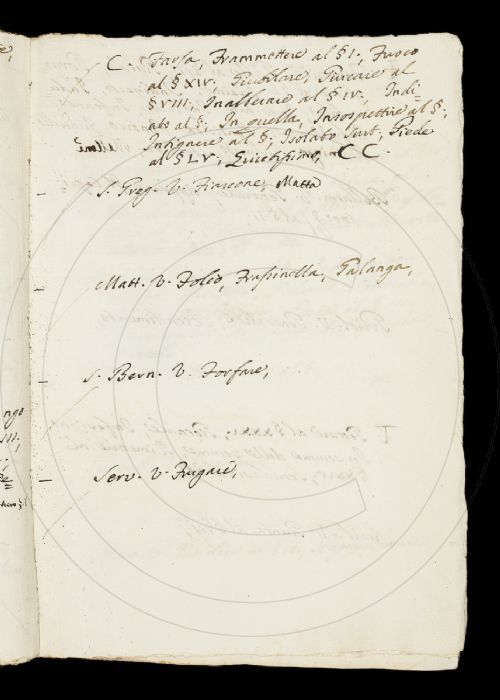 C. Farsa, Frammettere al § I., Fuoco
al § XIV. Giubilare, Guecare al
§ VIII, Inalberare al § IV, Indi-
ato al §; In quella, Insospettire al §;
Insignere al §; Isolato Sust. Piede
al § LV; Quietissimo, CC.
S. Greg. V. Fiascone, Matta
Matt. V. Foleo, Frassinella, Galanga,
S. Bern. V. Forfare,
Serv. V. Frugare,
ngo
III,